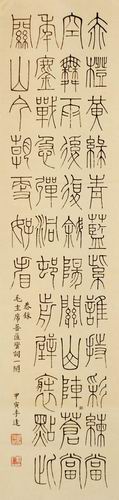 赤橙黃綠青藍紫誰持彩練當
空舞雨後復斜陽關山陣〻蒼當
年鏖戰急彈洞前村壁裝點此
關山今朝更好看
恭錄
毛主席菩薩蠻詞一闋
甲寅